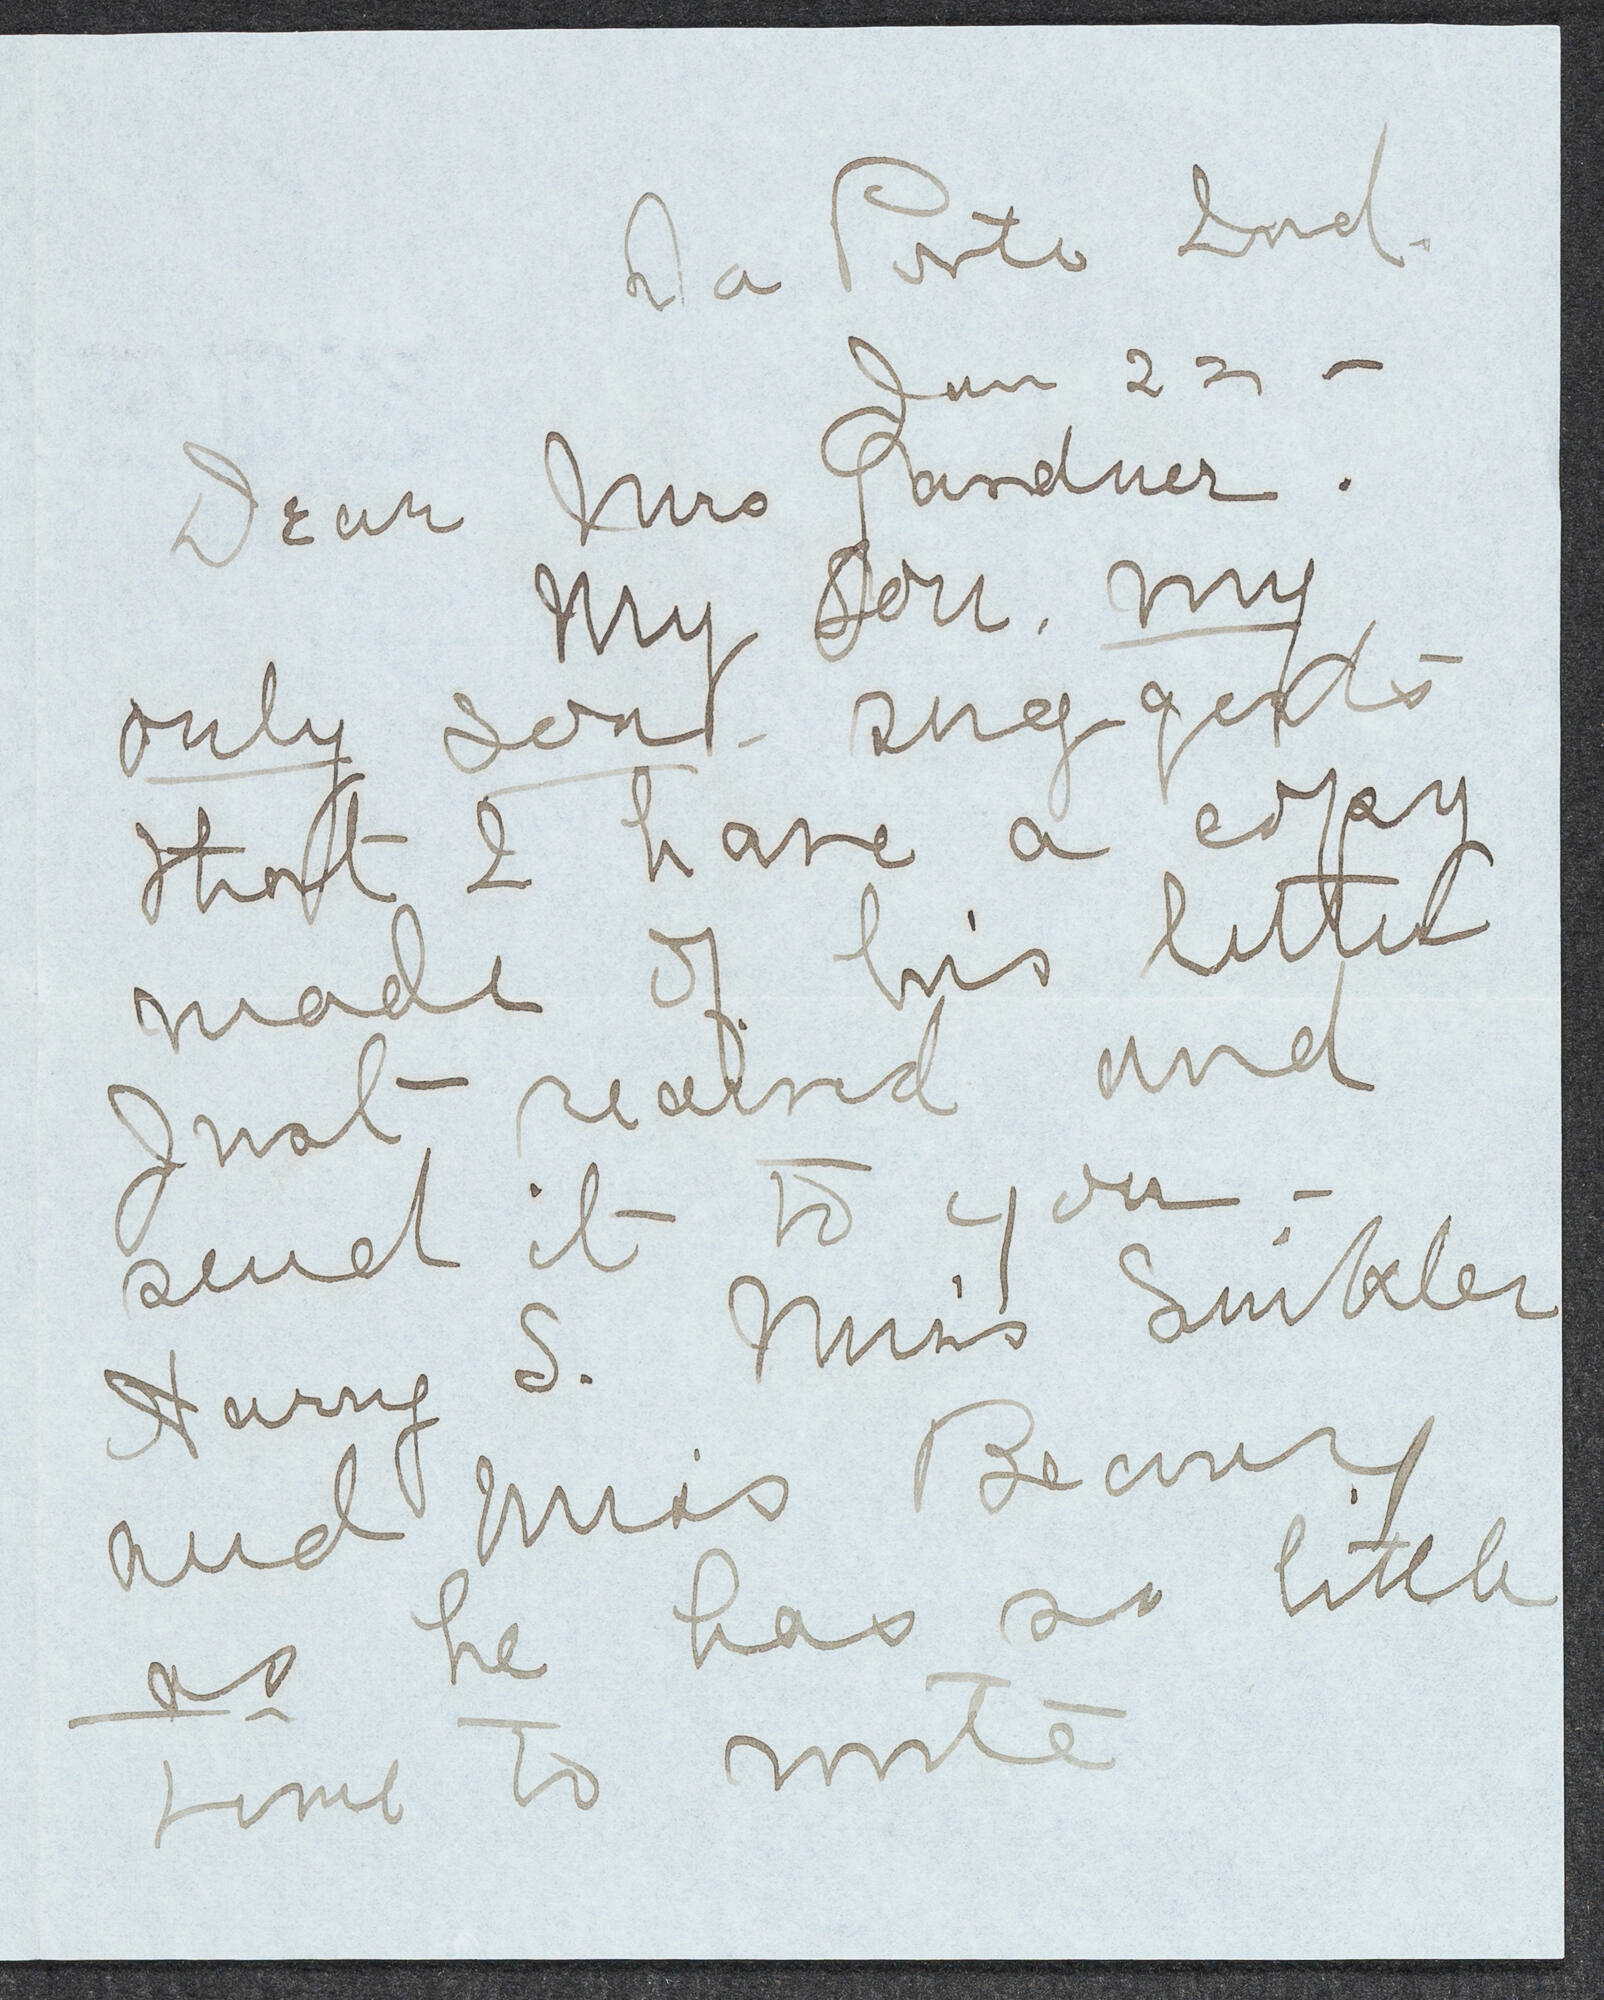 La Porte Ind.
Jan 22 -
Dear Mrs Gardner.
My Son, my
only son - suggests
that I have a copy
made of his letter
just received and
send it to you -
Harry S. Miss Sinkler
and Miss Beaury
as he has so little
time to write